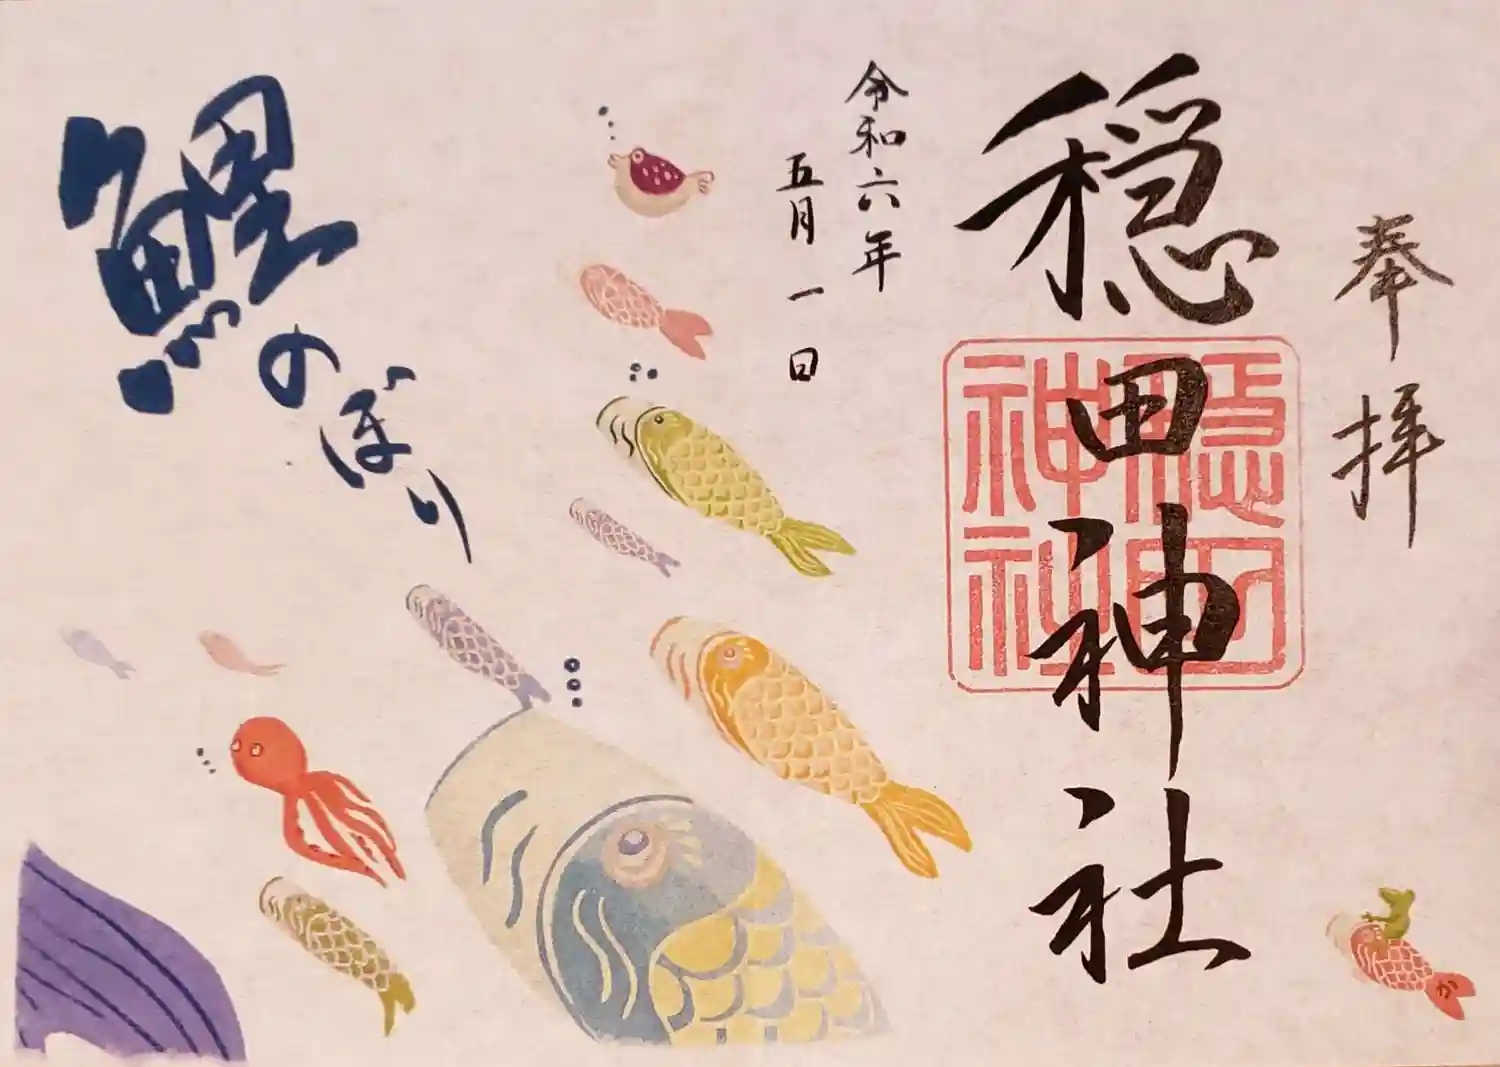 奉拝
穏田神社
穏田
神社
令和六年
五月一日
鯉のぼり
か